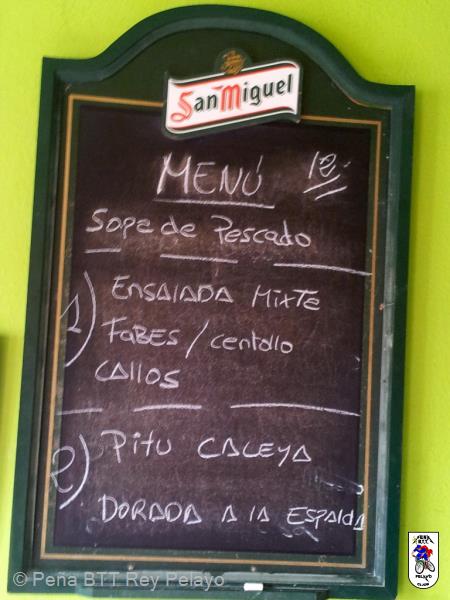 San Miguel
MENÚ 12.-
Sopa de Pescado
1) ENSALADA MIXTE
FABES / centollo
CALLOS
2) PITU CALEYA
DORADA A LA ESPALDA
© Pena BTT Rey Pelayo
PEÑA
B.T.T.
PELAYO
GIJON